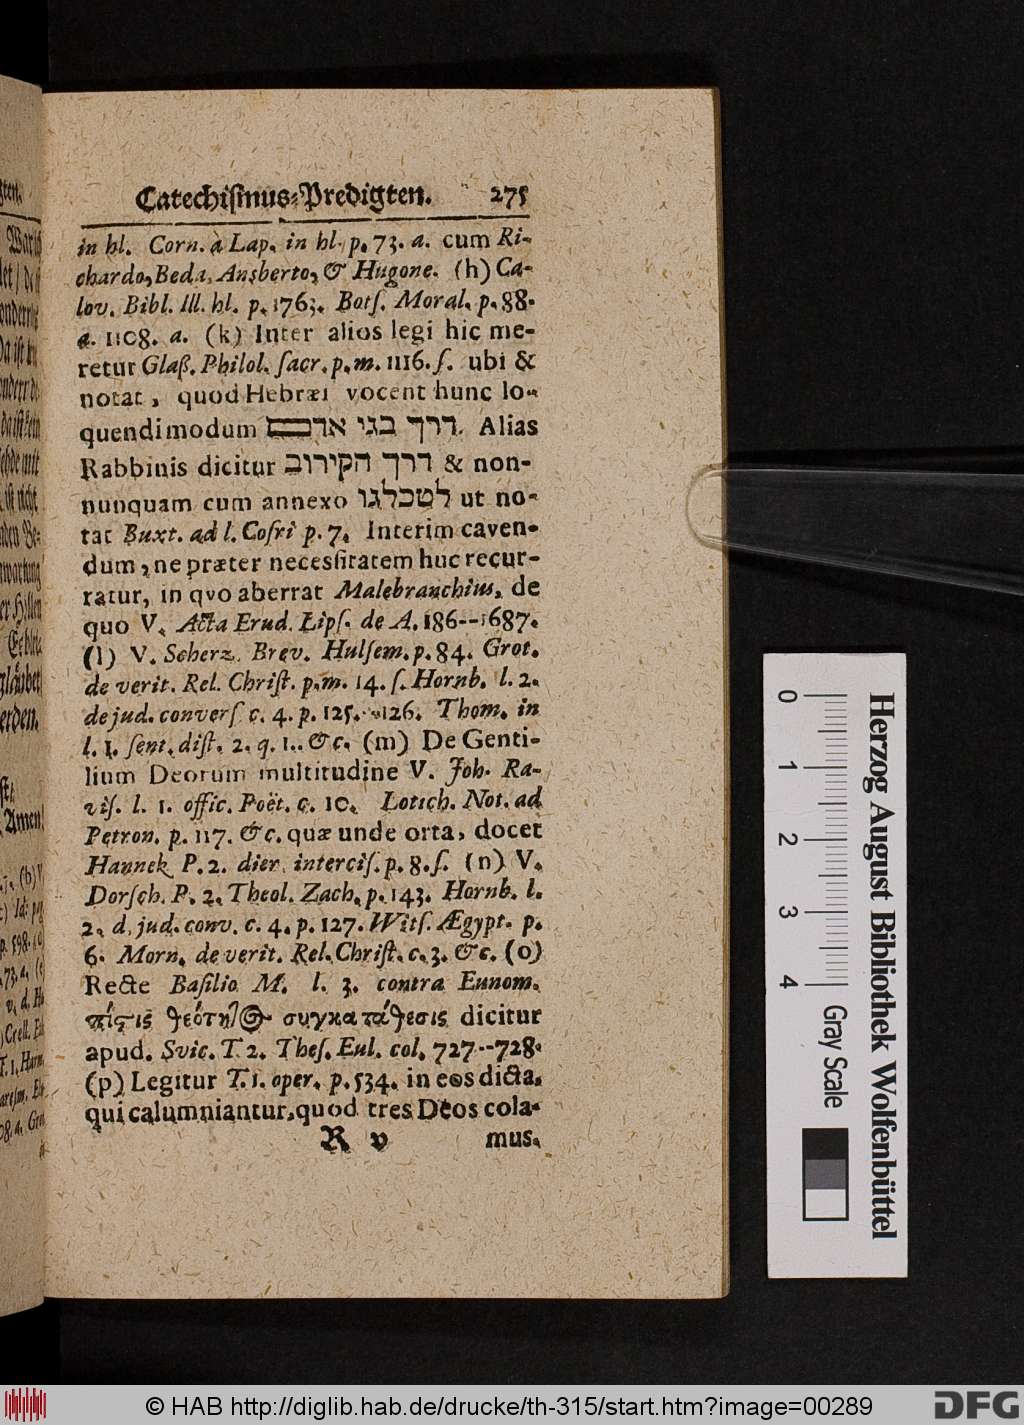 Catechiſmus-Predigten. 275
in hl. Corn. à Lap. in hl. p. 73. a. cum Ri-
chardo, Beda, Ansberto, & Hugone. (h) Ca-
lov. Bibl. Ill. hl. p. 1763. Botſ. Moral. p. 88.
a. 1108. a. (k) Inter alios legi hic me-
retur Glaß. Philol. ſacr. p. m. 1116. ſ. ubi &
notat, quod Hebræi vocent hunc lo-
quendi modum דרך בני אדם. Alias
Rabbinis dicitur דרך הקירוב & non-
nunquam cum annexo ut no-
tat Buxt. ad l. Coſri p. 7. Interim caven-
dum, ne præter neceſſitatem huc recur-
ratur, in qvo aberrat Malebranchius, de
quo V. Acta Erud. Lipſ. de A. 186--1687.
(l) V. Scherz. Brev. Hulſem. p. 84. Grot.
de verit. Rel. Chriſt. p. m. 14. ſ. Hornb. l. 2.
de jud. converſ c. 4. p. 125.-126. Thom. in
l. 1. ſent. diſt. 2. q. 1.. &c. (m) De Genti-
lium Deorum multitudine V. Joh. Ra-
viſ. l. 1. offic. Poët. c. 10. Lotich. Not. ad
Petron. p. 117. &c. quæ unde orta, docet
Hannek P. 2. dier. interciſ. p. 8. ſ. (n) V.
Dorſch. P. 2. Theol. Zach. p. 143. Hornb. l.
2. d. jud. conv. c. 4. p. 127. Witſ. Ægypt. p.
6. Morn. de verit. Rel. Chriſt. c. 3. &c. (o)
Recte Baſilio M. l. 3. contra Eunom.
πίστις θεότητος συγκατάθεσις dicitur
apud. Svic. T. 2. Theſ. Eul. col. 727--728.
(p) Legitur T. 1. oper. p. 534. in eos dicta,
qui calumniantur, quod tres Deos cola-
R v mus.
Herzog August Bibliothek Wolfenbüttel
0 1 2 3 4 Gray Scale
© HAB http://diglib.hab.de/drucke/th-315/start.htm?image=00289
DFG